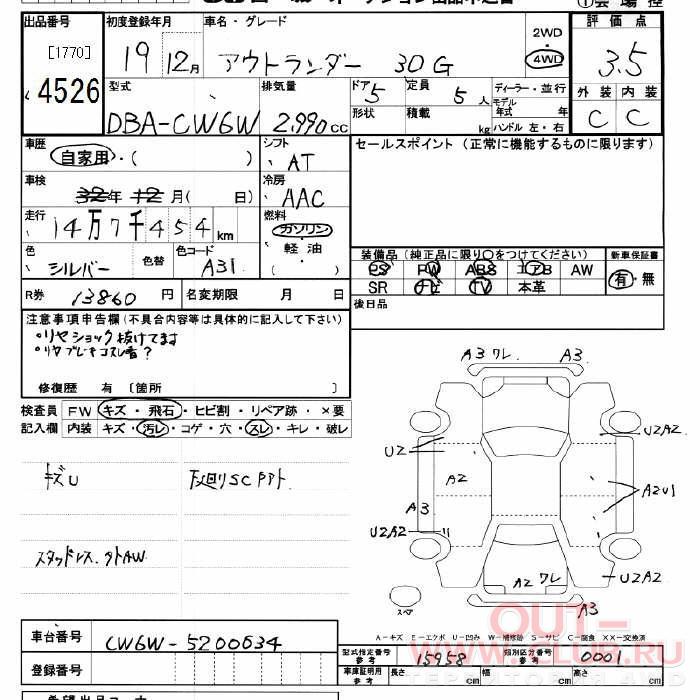 出品番号 初度登録年月 車名・グレード 2WD ・ 4WD 評価点
[1770] 4526 19 12月 アウトランダー 30G 3.5
型式 排気量 ドア 定員 ディーラー・並行 外装 内装
DBA-CW6W 2,990cc 5 5人 モデル年式 年 C C
形状 積載 kg ハンドル 左・右
車歴 自家用・( ) シフト AT セールスポイント(正常に機能するものに限ります)
車検 32年 12月( 日) 冷房 AAC
走行 14万7千454km 燃料 ガソリン・軽油・( )
色 シルバー 色替 色コード A31
装備品(純正品に限り○をつけてください) 新車保証書
PS PW ABS エアB AW 有・無
SR ナビ TV 本革
R券 13860円 名変期限 月 日 後日品
注意事項申告欄(不具合内容等は具体的に記入して下さい)
リヤショック抜けてます
修復歴 有 [箇所 ]
検査員 FW キズ・飛石・ヒビ割・リペア跡・×要
記入欄 内装 キズ・汚レ・コゲ・穴・スレ・キレ・破レ
キズU 下廻りSC
スタッドレス.
A3 ワレ A3
U2 U2A2
A2 A2U1
A3
U2A2
U2A2
A2 ワレ
スペア A3
A-キズ E-エクボ U-凹み W-補修跡 S-サビ C-腐食 XX-交換済
車台番号 CW6W-5200634
型式指定番号 参考 15958 類別区分番号 参考 0001
登録番号 車庫証明用 参考 長さ cm 幅 cm 高さ cm
OUT-CLUB.RU